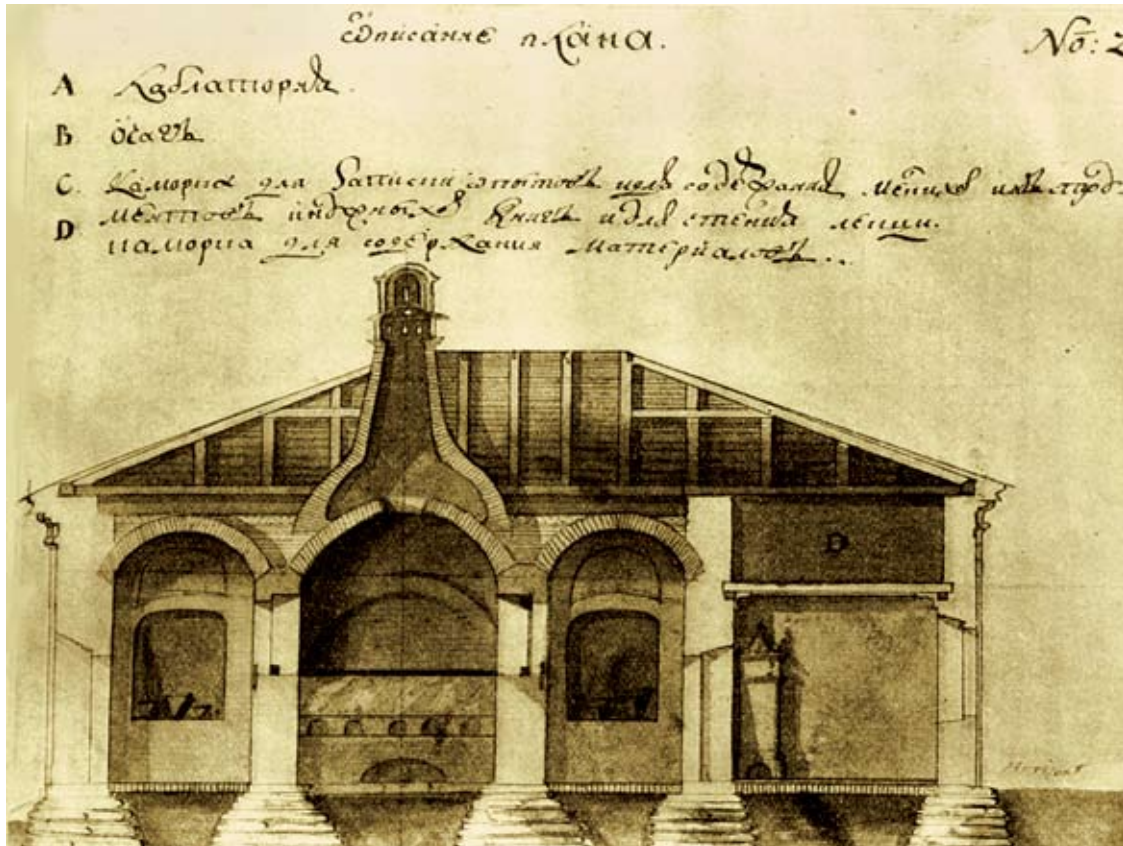 Описание плана. No: 2
A Лаблатория.
B Очагъ
C. Каморка для Записки опытовъ и для содержания
ментовъ и нужныхъ Книгъ и для чтения лекции.
D каморка для содержания материаловъ...
D